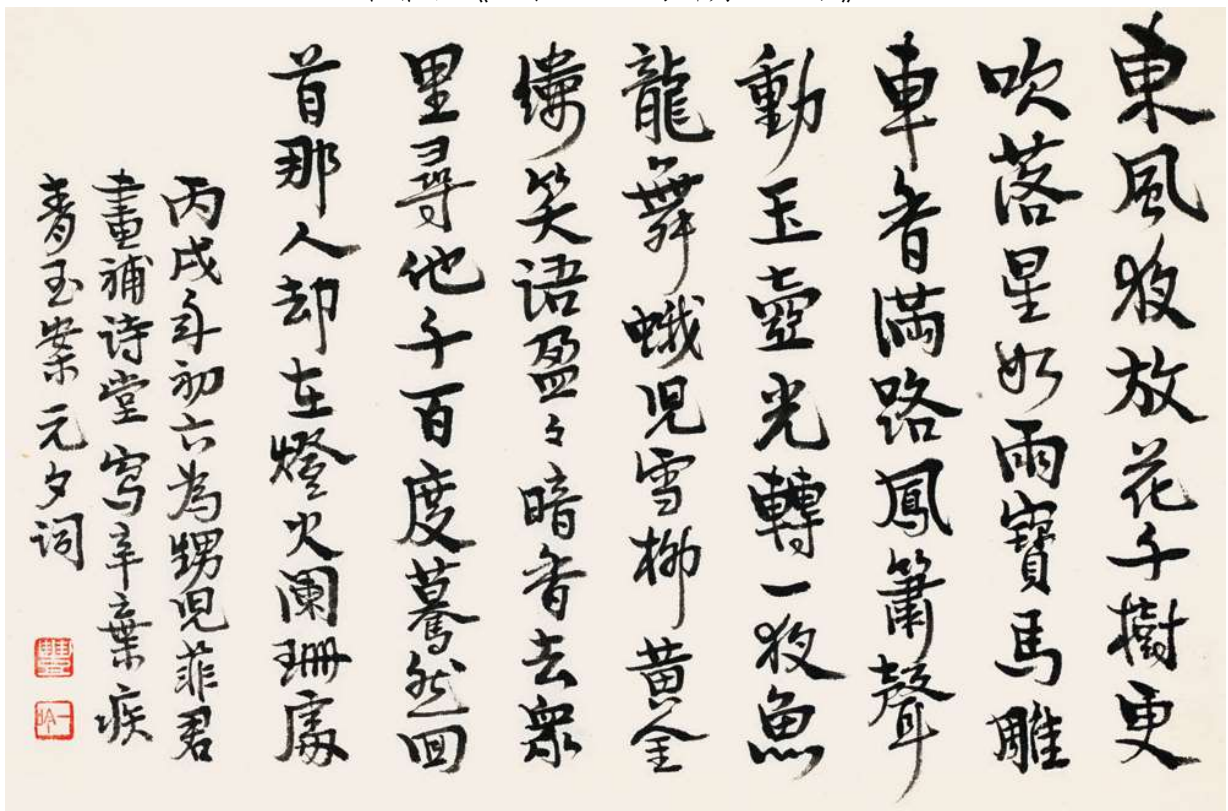 東風夜放花千樹更
吹落星如雨寶馬雕
車香滿路鳳簫聲
動玉壺光轉一夜魚
龍舞蛾兒雪柳黃金
縷笑语盈々暗香去衆
里尋他千百度驀然回
首那人却在燈火闌珊處
丙戌年初六為甥兒菲君
畫補诗堂寫辛棄疾
青玉案元夕词
豐
一吟